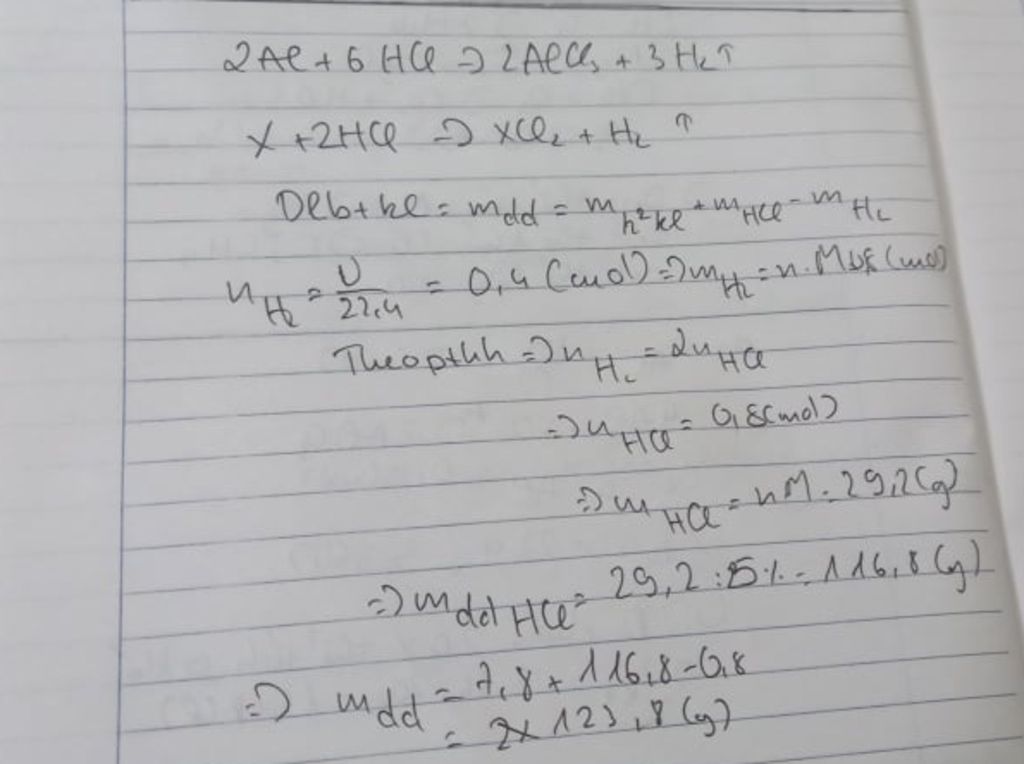 2Al + 6 HCl => 2AlCl₃ + 3 H₂↑
X + 2HCl => XCl₂ + H₂ ↑
Dlbtkl = mdd = m h² kl + m HCl - m H₂
n H₂ = V/22,4 = 0,4 (mol) => m H₂ = n.M 0,8 (mol)
Theo pthh => n H₂ = 2n HCl
=> n HCl = 0,8(mol)
=> m HCl = nM = 29,2(g)
=> m dd HCl = 29,2 : 5% = 116,8 (g)
=> mdd = 7,8 + 116,8 - 0,8
= 123,8 (g)